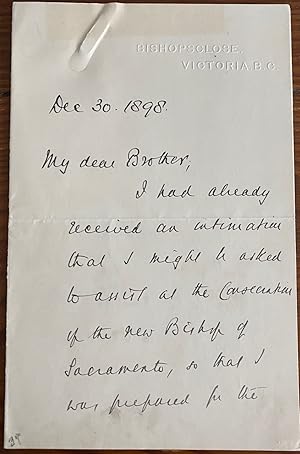 BISHOPSCLOSE,
VICTORIA B.C.
Dec 30. 1898.
My dear Brother,
I had already
received an intimation
that I might be asked
to assist at the Consecration
of the new Bishop of
Sacramento, so that I
was prepared for the